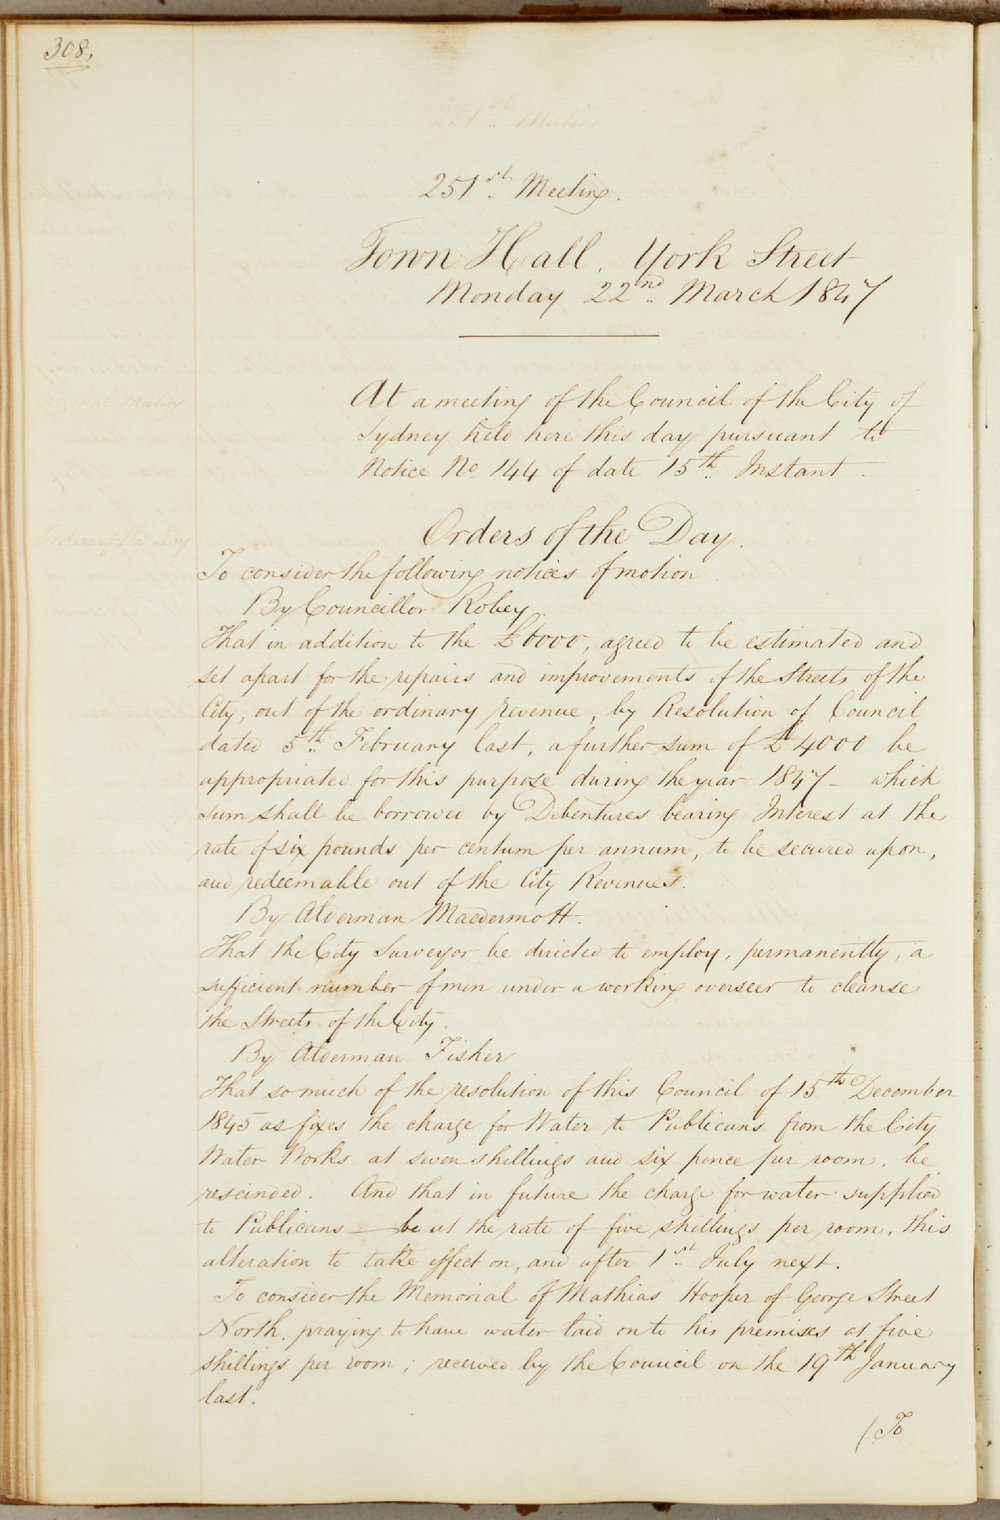 308.
251st Meeting.
Town Hall, York Street
Monday 22nd March 1847
At a meeting of the Council of the City of
Sydney held here this day pursuant to
Notice No. 144 of date 15th Instant.
Orders of the Day.
To consider the following notices of motion
By Councillor Robey.
That in addition to the £6000, agreed to be estimated and
set apart for the repairs and improvements of the Streets of the
City, out of the ordinary revenue, by Resolution of Council
dated 5th February last, a further sum of £4000 be
appropriated for this purpose during the year 1847 - which
sum shall be borrowed by Debentures bearing Interest at the
rate of six pounds per centum per annum, to be secured upon,
and redeemable out of the City Revenues.
By Alderman Macdermott.
That the City Surveyor be directed to employ, permanently, a
sufficient number of men under a working overseer to cleanse
the Streets of the City.
By Alderman Fisher
That so much of the resolution of this Council of 15th December
1845 as fixes the charge for Water to Publicans from the City
Water Works at seven shillings and six pence per room, be
rescinded. And that in future the charge for water supplied
to Publicans - be at the rate of five shillings per room, this
alteration to take effect on, and after 1st July next.
To consider the Memorial of Mathias Hooper of George Street
North, praying to have water laid on to his premises at five
shillings per room; received by the Council on the 19th January
last.
(To